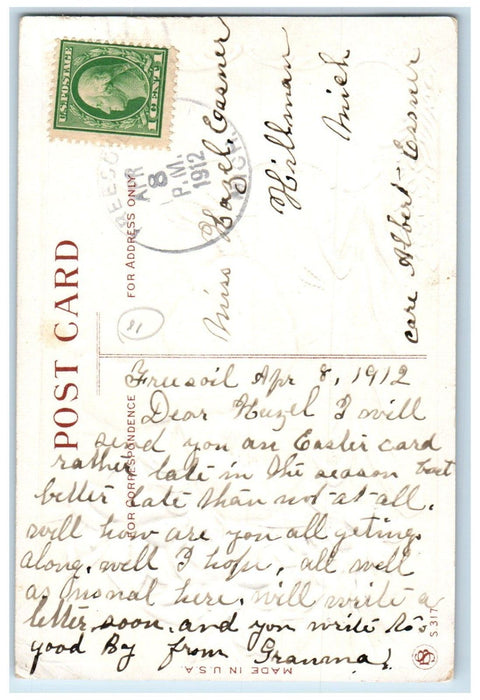 U.S. POSTAGE
1 CENT 1
FREESOIL
APR
8
P.M.
1912
MICH.
POST CARD
FOR ADDRESS ONLY
FOR CORRESPONDENCE
Miss Hazel Essner
Hillman
Mich
care Albert Essner
21
Freesoil Apr 8, 1912
Dear Hazel I will
send you an Easter card
rather late in the season but
better late than not-at-all.
well how are you all geting
along, well I hope, all well
as usual here, will write a
letter soon, and you write to
good By from Granma
MADE IN U.S.A.
S 317